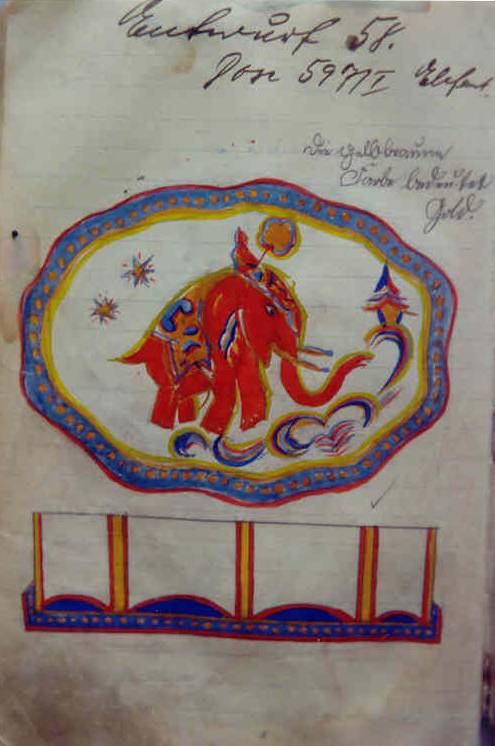 Entwurf 58.
Dose 597/I Elefant.
Die gelbbraune
Farbe bedeutet
Gold.